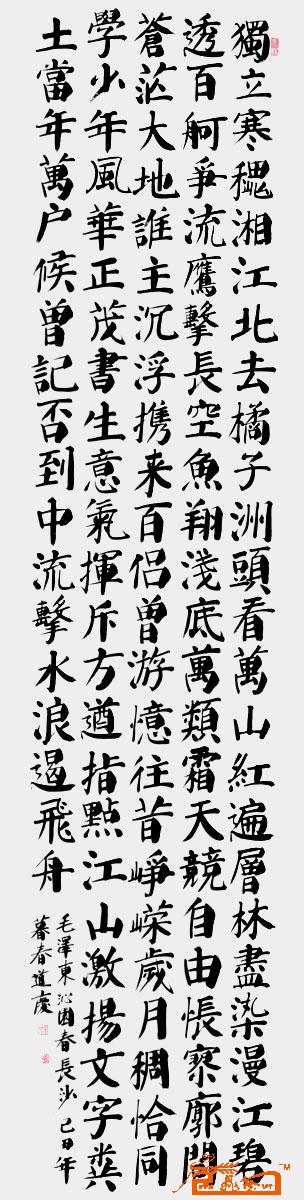 獨立寒穐湘江北去橘子洲頭看萬山紅遍層林盡染漫江碧
透百舸爭流鷹擊長空魚翔淺底萬類霜天競自由悵寥廓問
蒼茫大地誰主沉浮携来百侣曾游憶往昔崢嶸歲月稠恰同
學少年風華正茂書生意氣揮斥方遒指點江山激揚文字糞
土當年萬户候曾記否到中流擊水浪遏飛舟
毛澤東沁園春長沙己丑年
暮春道慶